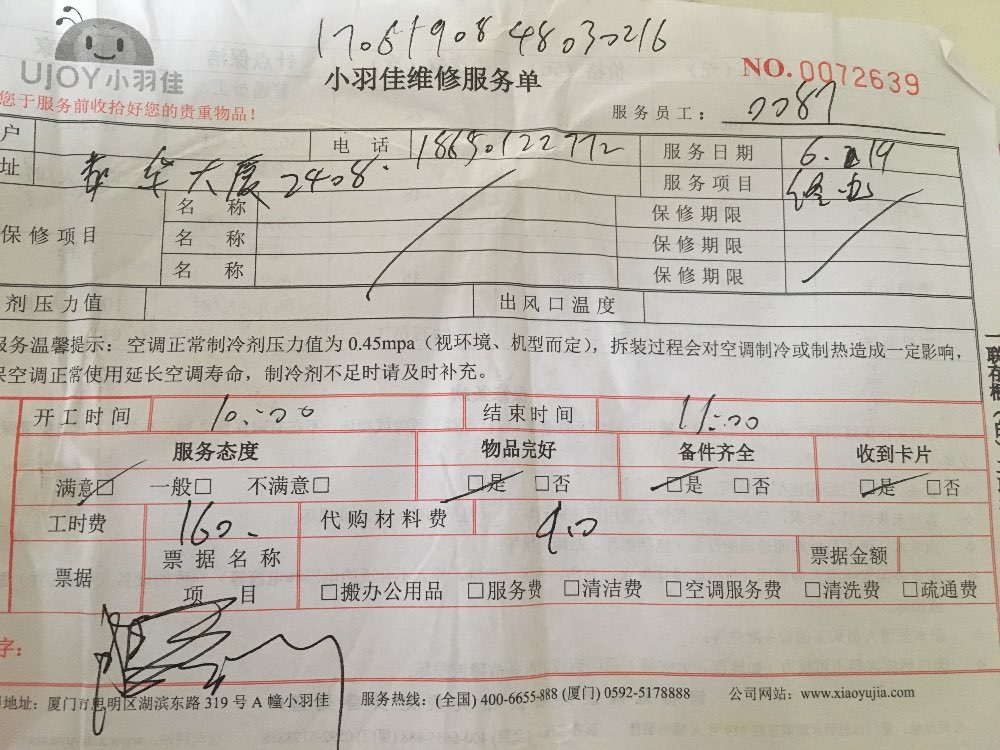 17061908 48030216
UJOY小羽佳
小羽佳维修服务单
NO.0072639
您于服务前收拾好您的贵重物品！
服务员工：0087
户 电话 服务日期 6.
址 大厦2408. 服务项目
名称 保修期限
保修项目 名称 保修期限
名称 保修期限
剂压力值 出风口温度
服务温馨提示：空调正常制冷剂压力值为 0.45mpa（视环境、机型而定），拆装过程会对空调制冷或制热造成一定影响，
保空调正常使用延长空调寿命，制冷剂不足时请及时补充。
开工时间 10:00 结束时间 11:00
服务态度 物品完好 备件齐全 收到卡片
满意□ 一般□ 不满意□ □是 □否 □是 □否 □是 □否
工时费 160. 代购材料费 90
票据 票据名称 票据金额
项目 □搬办公用品 □服务费 □清洁费 □空调服务费 □清洗费 □疏通费
字：
地址：厦门市思明区湖滨东路 319 号 A 幢小羽佳 服务热线：(全国) 400-6655-888 (厦门) 0592-5178888 公司网站：www.xiaoyujia.com